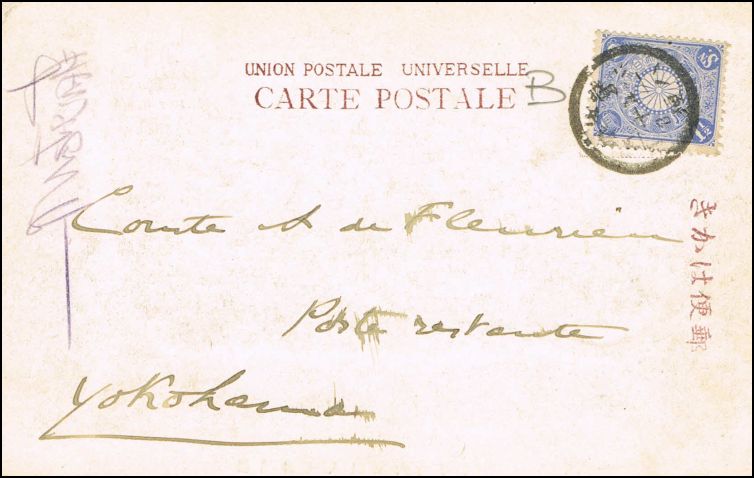 UNION POSTALE UNIVERSELLE
CARTE POSTALE
B
1½
Comte A de Fleurieu
Poste restante
Yokohama
きかは便郵